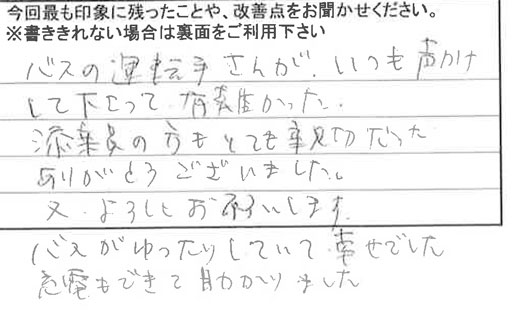 今回最も印象に残ったことや、改善点をお聞かせください。
※書ききれない場合は裏面をご利用下さい
バスの運転手さんが、いつも声かけ
して下さって、有難かった。
添乗員の方もとても親切だった
ありがとうございました。
又、よろしくお願いします。
バスがゆったりしていて幸せでした
充電もできて助かりました